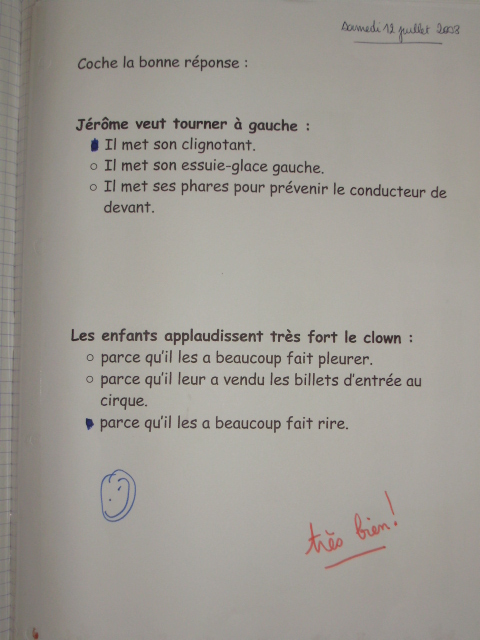 Samedi 12 juillet 2008
Coche la bonne réponse :
Jérôme veut tourner à gauche :
Il met son clignotant.
Il met son essuie-glace gauche.
Il met ses phares pour prévenir le conducteur de
devant.
Les enfants applaudissent très fort le clown :
parce qu'il les a beaucoup fait pleurer.
parce qu'il leur a vendu les billets d'entrée au
cirque.
parce qu'il les a beaucoup fait rire.
très bien !